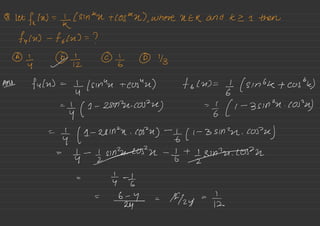 Q let fₖ(x) = 1/k (sinᵏx + cosᵏx), where x∈R and k ≥ 1 then
f₄(x) − f₆(x) = ?
Ⓐ 1/4 Ⓑ 1/12 Ⓒ 1/6 Ⓓ 1/3
Ans f₄(x) = 1/4 (sin⁴x + cos⁴x) f₆(x) = 1/6 (sin⁶x + cos⁶x)
= 1/4 (1 − 2sin²x.cos²x) = 1/6 (1 − 3sin²x.cos²x)
= 1/4 (1 − 2sin²x.cos²x) − 1/6 (1 − 3sin²x.cos²x)
= 1/4 − 1/2 sin²x.cos²x − 1/6 + 1/2 sin²x.cos²x
= 1/4 − 1/6
= 6−4/24 = 2/24 = 1/12